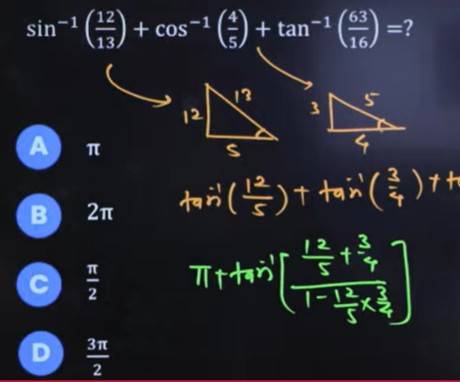 sin⁻¹ (12/13) + cos⁻¹ (4/5) + tan⁻¹ (63/16) =?
12 13 5
3 5 4
A π
B 2π
C π/2
D 3π/2
tan⁻¹(12/5) + tan⁻¹(3/4) + t
π + tan⁻¹[(12/5 + 3/4)/(1 - 12/5 × 3/4)]